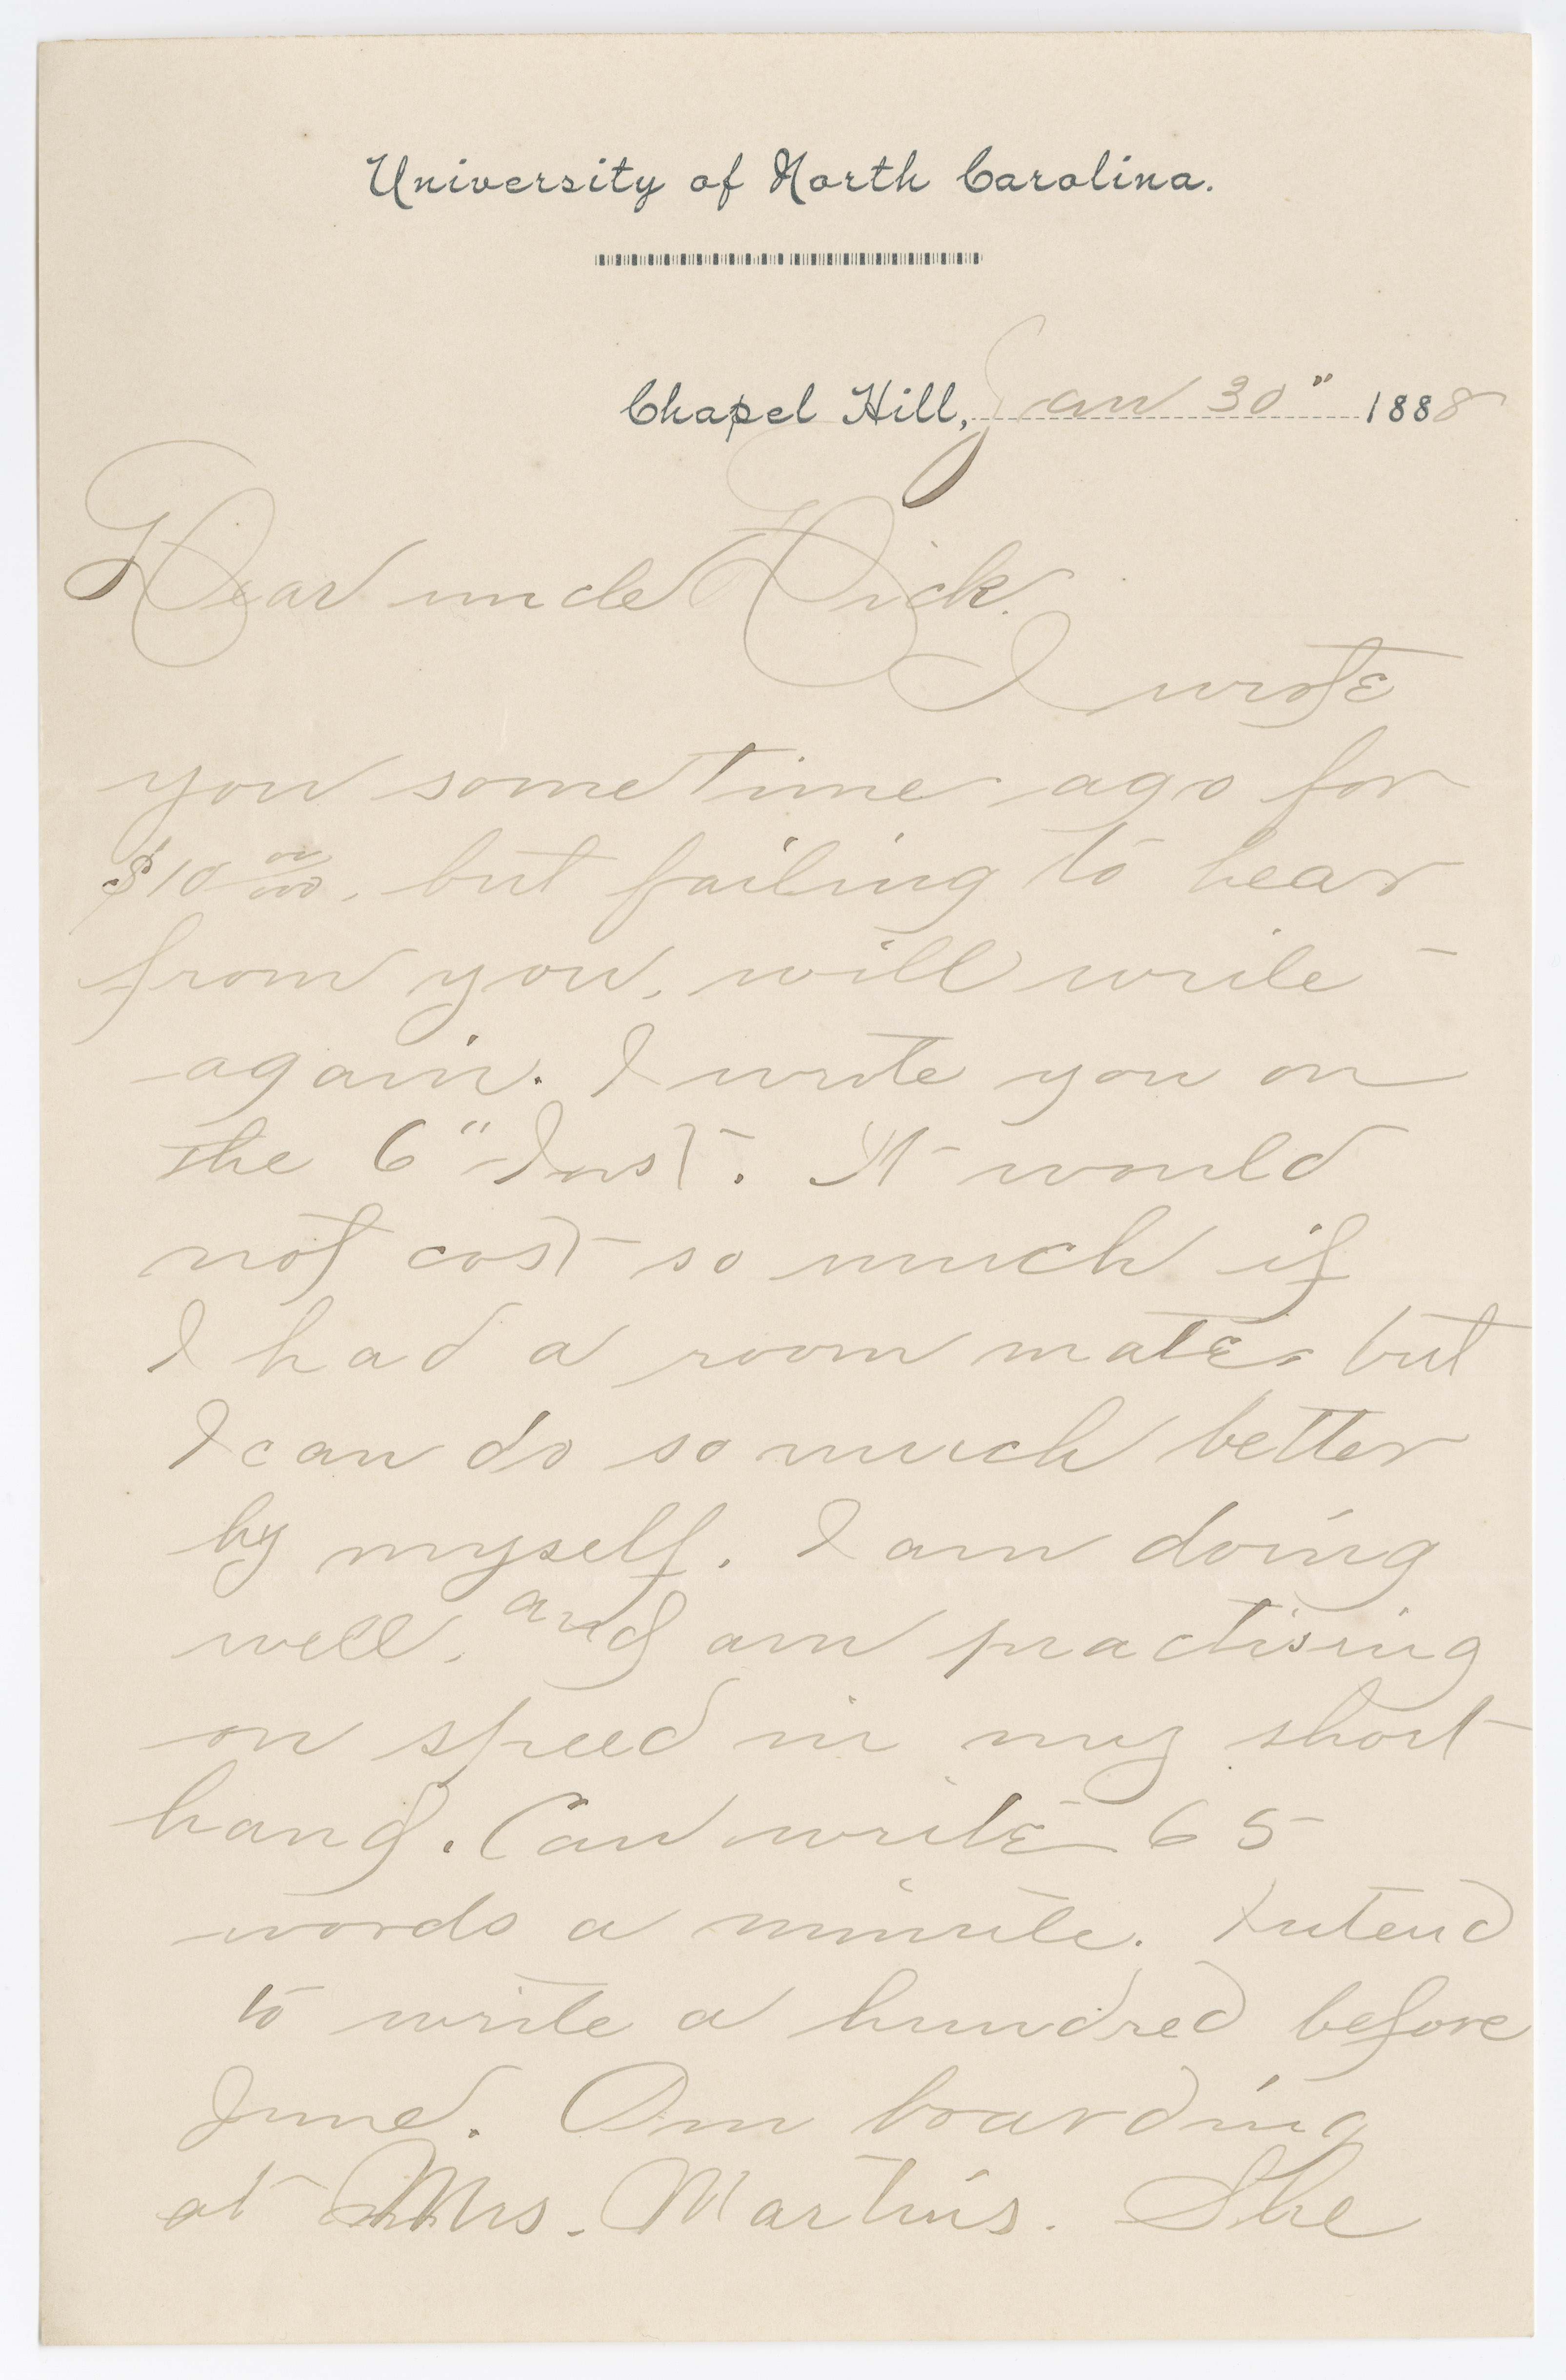 University of North Carolina.
Chapel Hill, Jan 30" 1888
Dear uncle Dick.
I wrote
you sometime ago for
$10 00/100, but failing to hear
from you, will write
again. I wrote you on
the 6" Inst. It would
not cost so much if
I had a room mate, but
I can do so much better
by myself. I am doing
well, and am practising
on speed in my short
hand. Can write 65
words a minute. Intend
to write a hundred before
June. Am boarding
at Mrs. Martins. She